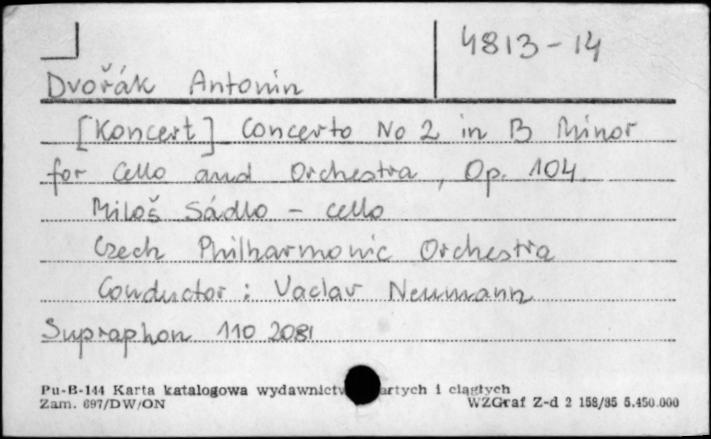 4813-14
Dvořák Antonin
[Koncert] Concerto No 2 in B Minor
for Cello and Orchestra, Op. 104
Miloš Sádlo - cello
Czech Philharmonic Orchestra
Conductor: Vaclav Neumann
Supraphon 110 2081
Pu-B-144 Karta katalogowa wydawnictw artych i ciągłych
Zam. 697/DW/ON WZGraf Z-d 2 158/85 5.450.000